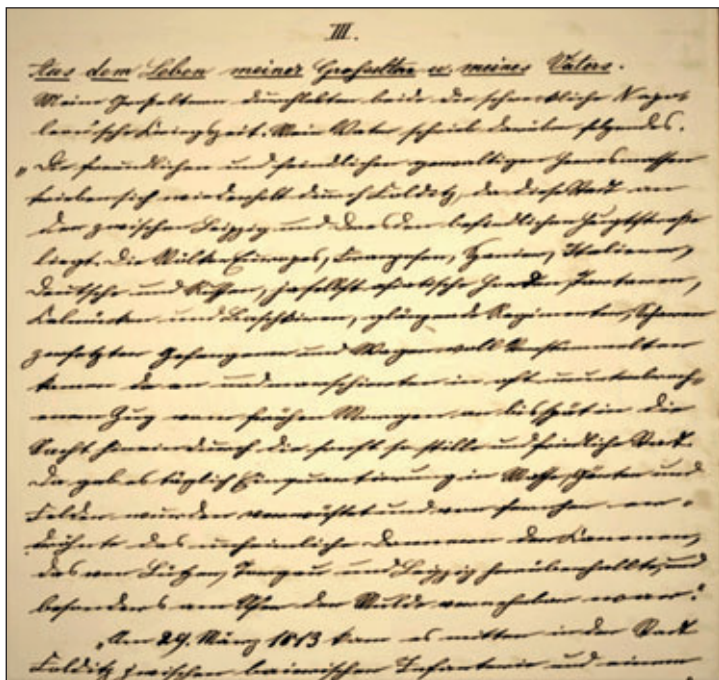 III.
Aus dem Leben meiner Großeltern u. meines Vaters.
Meine Großeltern durchlebten beide die schreckliche Napo-
leon'sche Kriegszeit. Mein Vater schrieb darüber folgendes.
„Die freundlichen und feindlichen gewaltigen Heeresmassen
trieben sich wiederholt durch Colditz, da diese Stadt an
der zwischen Leipzig und Dresden befindlichen Hauptstraße
liegt. Die Völker Europas, Franzosen, Spanier, Italiener,
Deutsche und Russen, ja selbst asiatische Horden, Tartaren,
Kalmücken und Baschkiren, glänzende Regimenter, Scharen
zerfetzter Gefangener und Wagen voll Verstümmelten
kamen da an und marschierten in oft ununterbroch-
enem Zug vom frühen Morgen an bis spät in die
Nacht hinein durch die sonst so stille und friedliche Stadt.
Da gab es täglich Einquartierung in Masse, Gärten und
Felder wurden verwüstet und von fernher er-
dröhnte das unheimliche Donnern der Kanonen,
das von Lützen, Torgau und Leipzig herüberhallte, und
besonders am Ufer der Mulde vernehmbar war."
„Am 29. März 1813 kam es mitten in der Stadt
Colditz zwischen bairischer Infanterie und einem